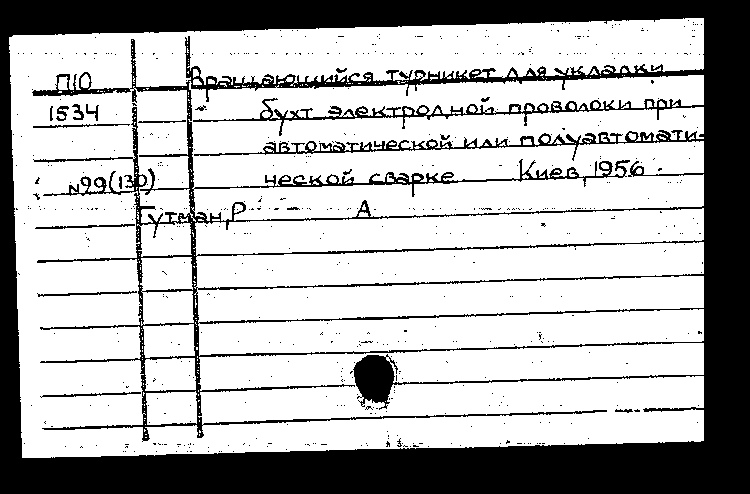 П10 Вращающийся турникет для укладки
1534 бухт электродной проволоки при
автоматической или полуавтомати-
№99(130) ческой сварке Киев, 1956.
Гутман, Р А